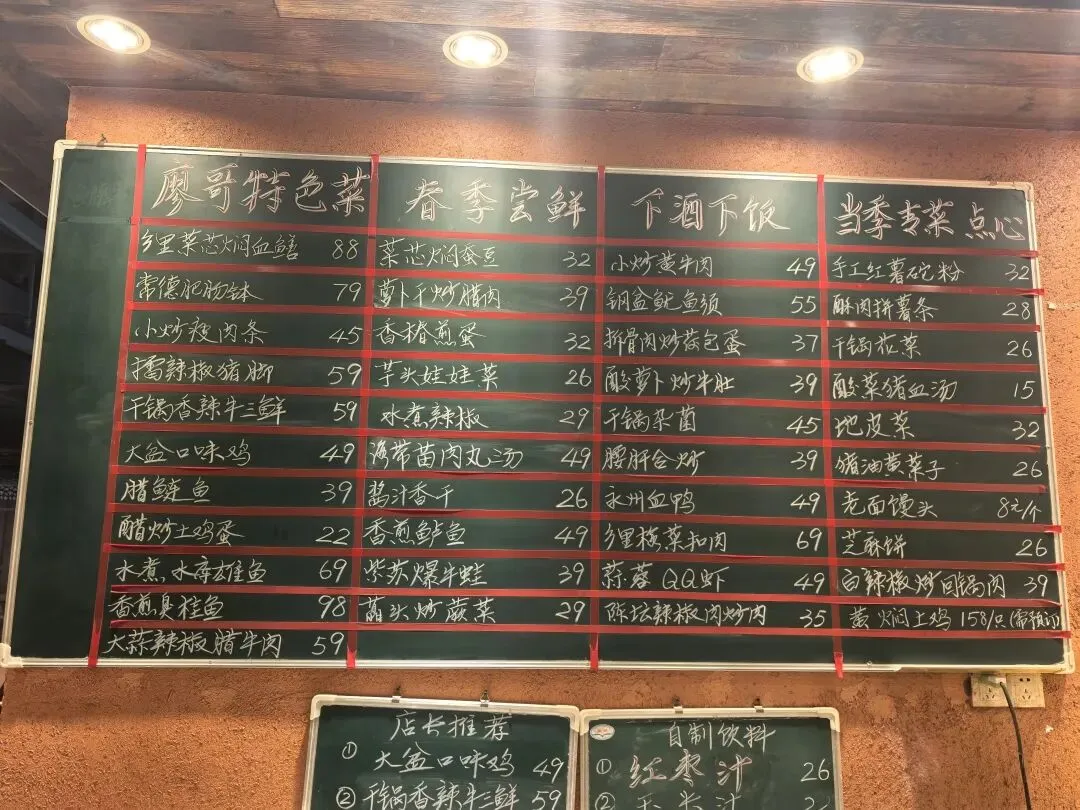 廖哥特色菜
乡里菜芯焖血鳝 88
常德肥肠钵 79
小炒瘦肉条 45
擂辣椒猪脚 59
干锅香辣牛三鲜 59
大盆口味鸡 49
腊鲢鱼 39
醋炒土鸡蛋 22
水煮水库雄鱼 69
香煎臭桂鱼 98
大蒜辣椒腊牛肉 59
春季尝鲜
菜芯焖蚕豆 32
萝卜干炒腊肉 39
香椿煎蛋 32
芋头娃娃菜 26
水煮辣椒 29
海带苗肉丸汤 49
酱汁香干 26
香煎鲈鱼 49
紫苏爆牛蛙 39
藠头炒蕨菜 29
下酒下饭
小炒黄牛肉 49
钢盆鱿鱼须 55
拆骨肉炒荷包蛋 37
酸萝卜炒牛肚 39
干锅杂菌 45
腰肝合炒 39
永州血鸭 49
乡里梅菜扣肉 69
蒜蓉QQ虾 49
陈坛辣椒肉炒肉 35
当季专菜 点心
手工红薯砣粉 32
酥肉拼薯条 28
干锅花菜 26
酸菜猪血汤 15
地皮菜 32
猪油黄菜子 26
老面馒头 8元/个
芝麻饼 26
白辣椒炒回锅肉 39
黄焖土鸡 158/只(需预订)
店长推荐
① 大盆口味鸡 49
② 干锅香辣牛三鲜 59
自制饮料
① 红枣汁 26
②